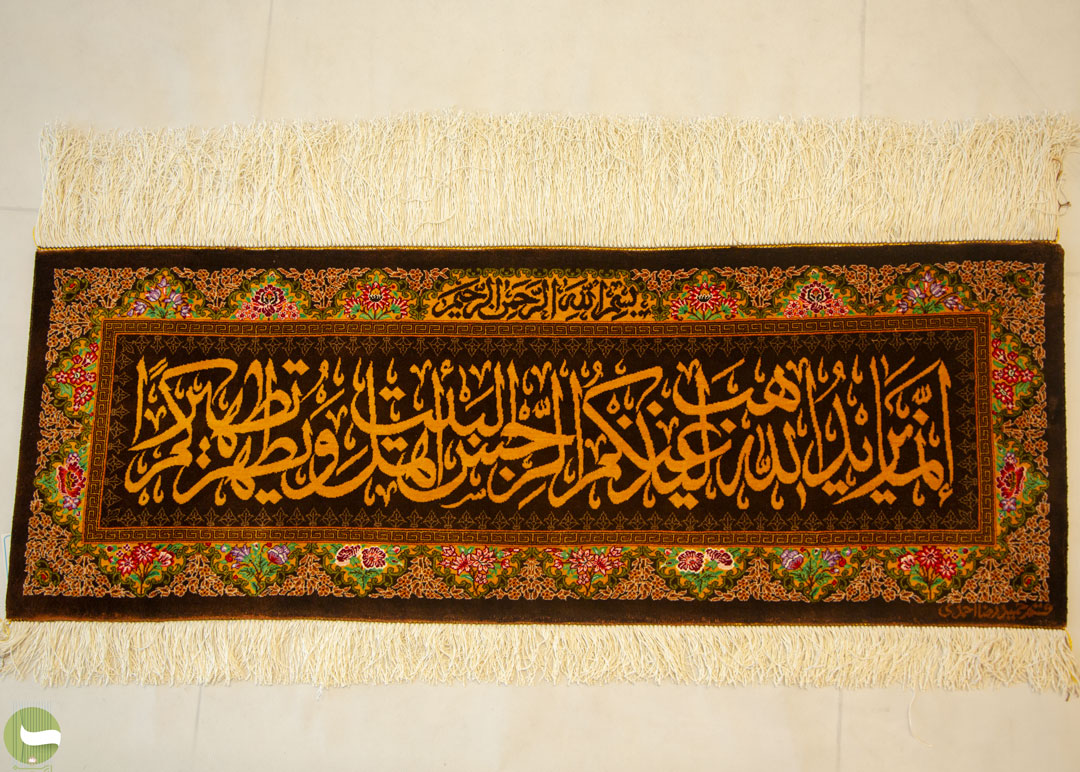 بسم الله الرحمن الرحيم
إنما يريد الله ليذهب عنكم الرجس أهل البيت ويطهركم تطهيرا